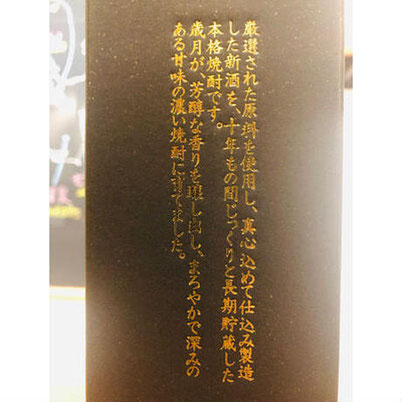 厳選された原料を使用し、真心込めて仕込み製造
した新酒を、十年もの間じっくりと長期貯蔵した
本格焼酎です。
歳月が、芳醇な香りを醸し出し、まろやかで深みの
ある甘味の濃い焼酎に育てました。